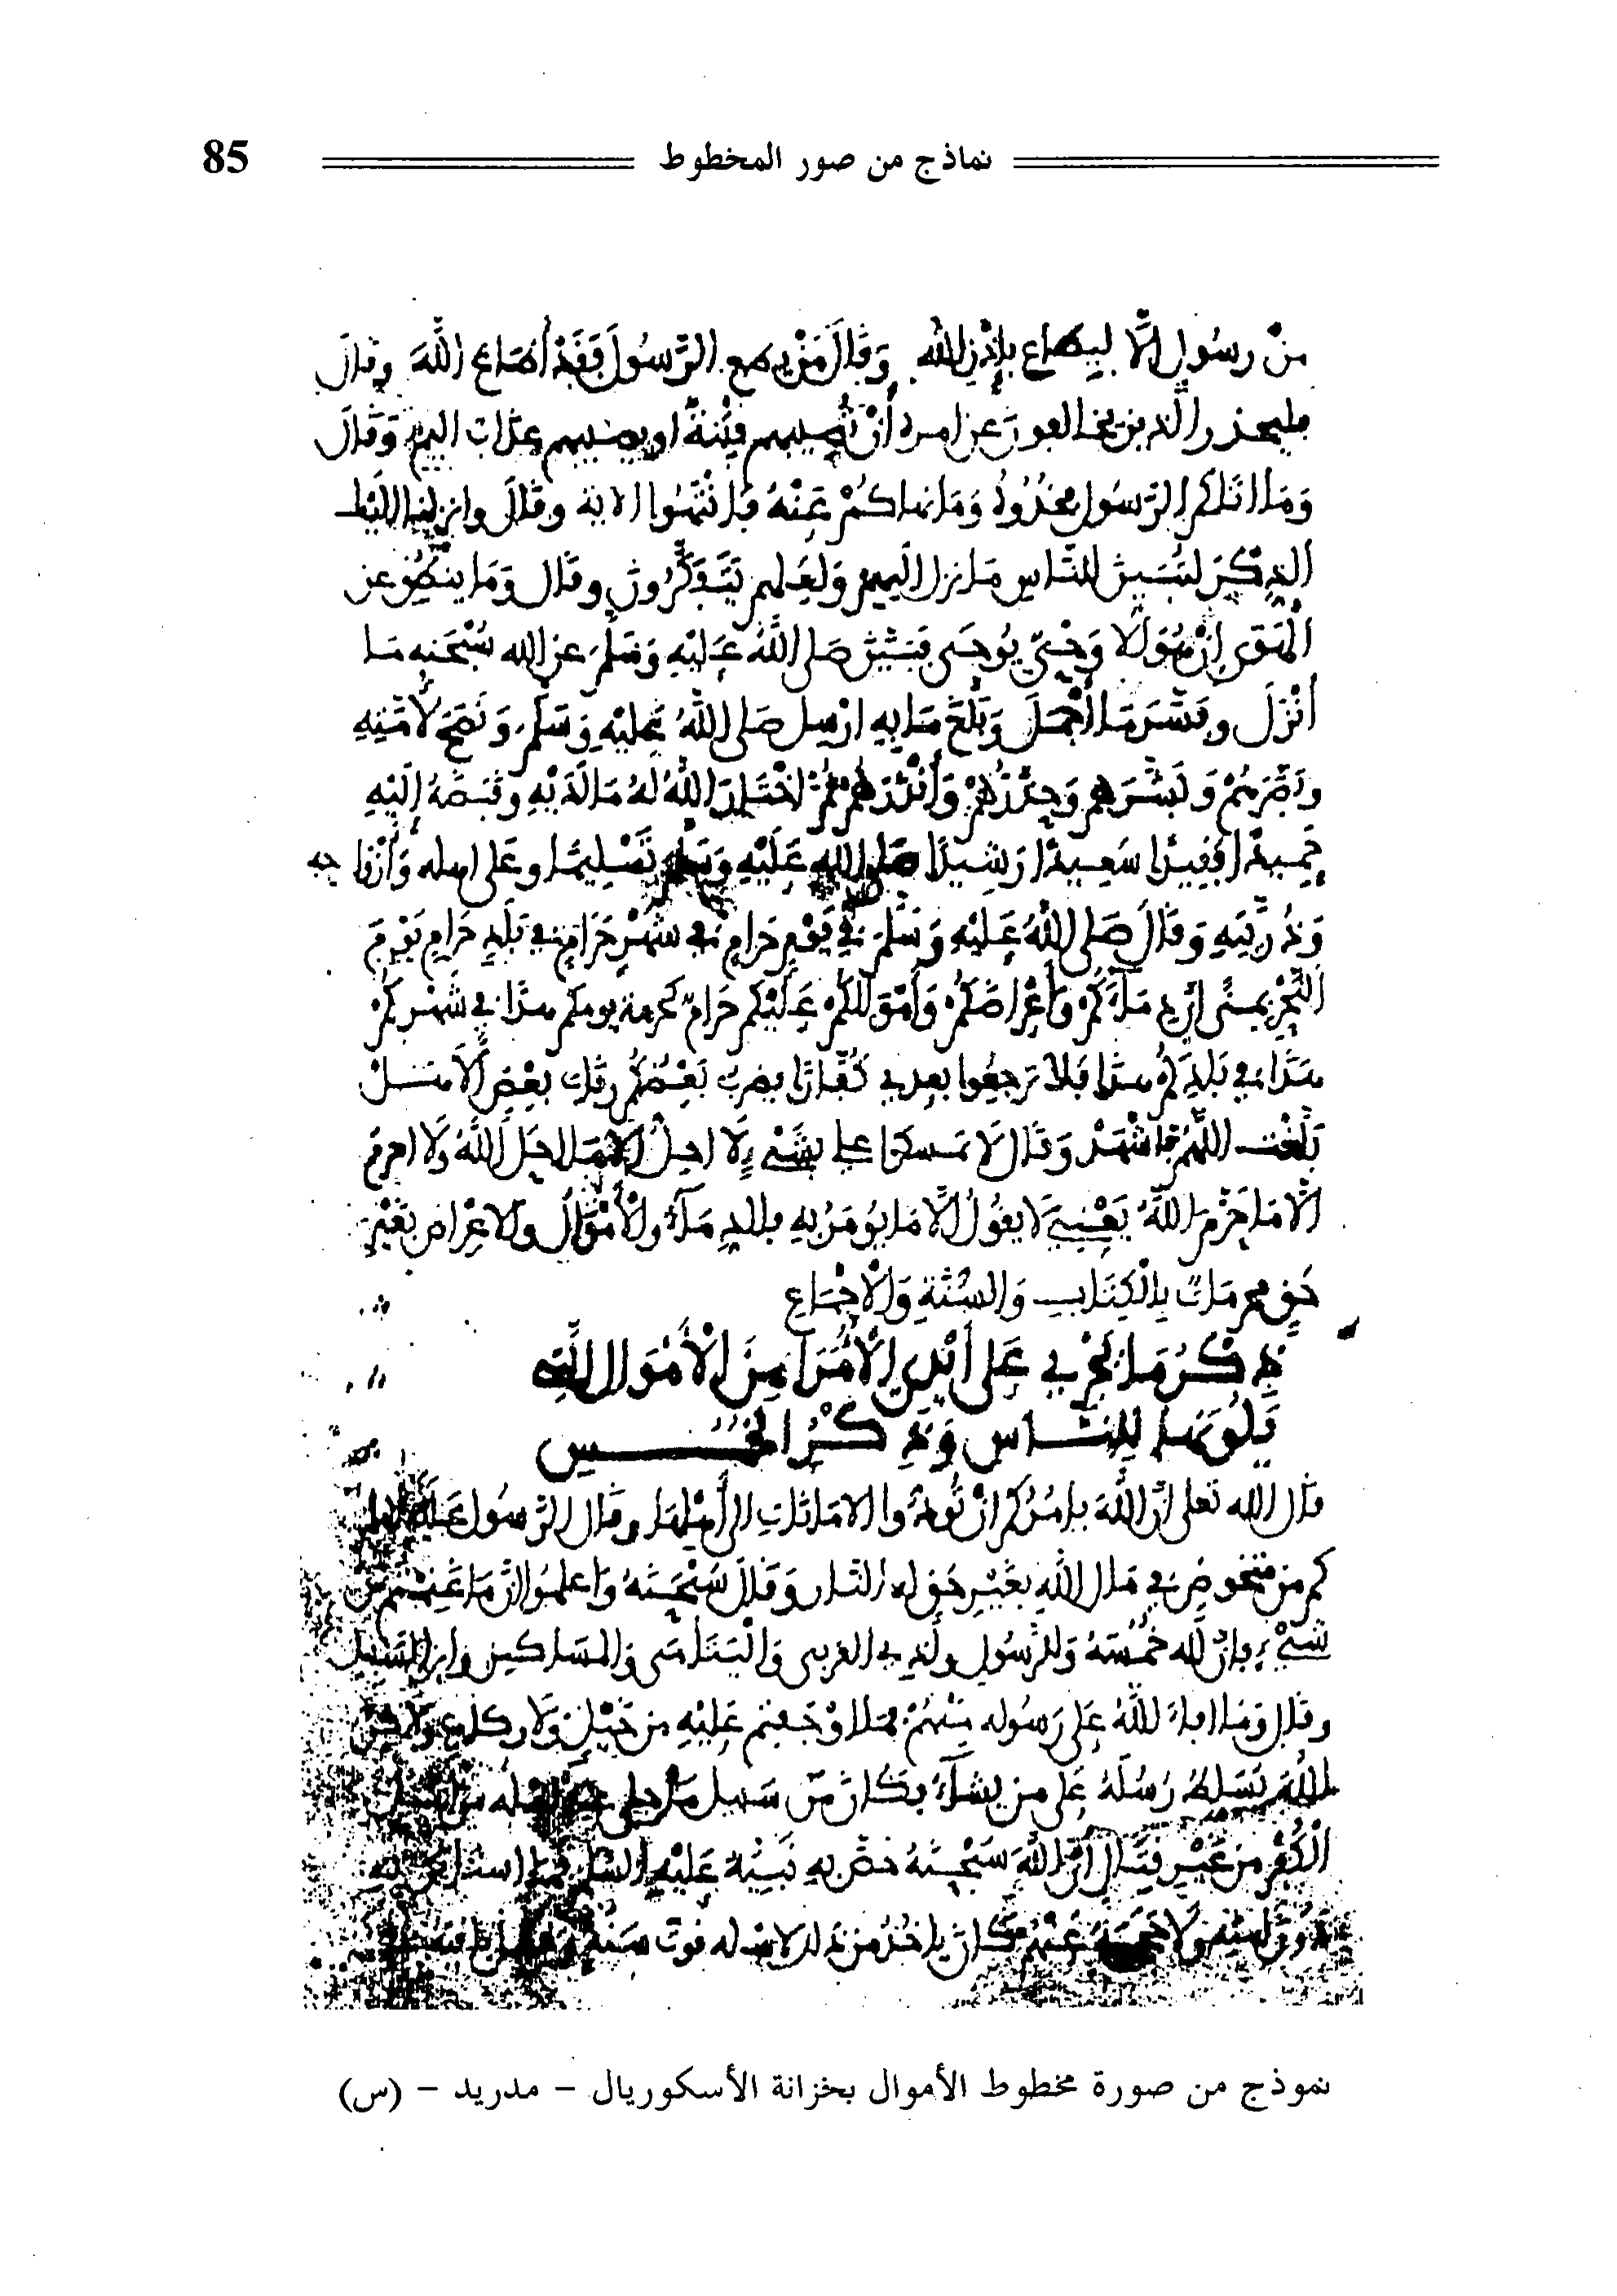 نماذج من صور المخطوط 85
من رسول إلا ليطاع بإذن الله وقال من يطع الرسول فقد أطاع الله وقال
فليحذر الذين يخالفون عن امره أن تصيبهم فتنة او يصيبهم عذاب اليم وقال
وما اتاكم الرسول فخذوه وما نهاكم عنه فانتهوا الاية وقال وانزلنا اليك
الذكر لتبين للناس ما نزل اليهم ولعلهم يتفكرون وقال وما ينطق عن
الهوى إن هو إلا وحي يوحى فبين صلى الله عليه وسلم عن الله سبحنه ما
أنزل وفسر ما أجمل وبلغ ما به ارسل صلى الله عليه وسلم ونصح لأمته
وبصرهم وبشرهم وحذرهم وأنذرهم ثم اختار الله له ما لديه وقبضه إليه
حميدا فقيدا سعيدا رشيدا صلى الله عليه وسلم تسليما وعلى اهله وأزواجه
وذريته وقال صلى الله عليه وسلم في يوم حرام في شهر حرام في بلد حرام يوم
النحر بمنى إن دماءكم وأعراضكم وأموالكم عليكم حرام كحرمة يومكم هذا في شهركم
هذا في بلدكم هذا فلا ترجعوا بعدي كفارا يضرب بعضكم رقاب بعض ألا هل
بلغت اللهم فاشهد وقال لا تمسكوا علي بشيء لا احل إلا ما احل الله ولا احرم
إلا ما حرم الله يعني لا يقول إلا ما يؤمر به فالدماء والأموال والاعراض بغير
حق محرمات بالكتاب والسنة والإجماع
ذكر ما يجري على أيدي الأمرا من الأموال التي
يلونها للناس وذكر الخمس
قال الله تعلى إن الله يامركم ان تؤدوا الامانات إلى أهلها وقال الرسول عليه السلام
كم من متخوض في مال الله بغير حق له النار وقال سبحنه واعلموا أن ما غنمتم من
شيء فإن لله خمسه وللرسول ولذي القربى واليتامى والمساكين وابن السبيل
وقال وما افاء الله على رسوله منهم فما اوجفتم عليه من خيل ولا ركاب ولاكن
الله يسلط رسله على من يشاء فكان من سبيل ما
الكفر من غير قتال أن الله سبحنه خص به نبيه عليه السلام
كان ياخذ من ذلك لاهله قوت سنة
نموذج من صورة مخطوط الأموال بخزانة الأسكوريال - مدريد - (س)